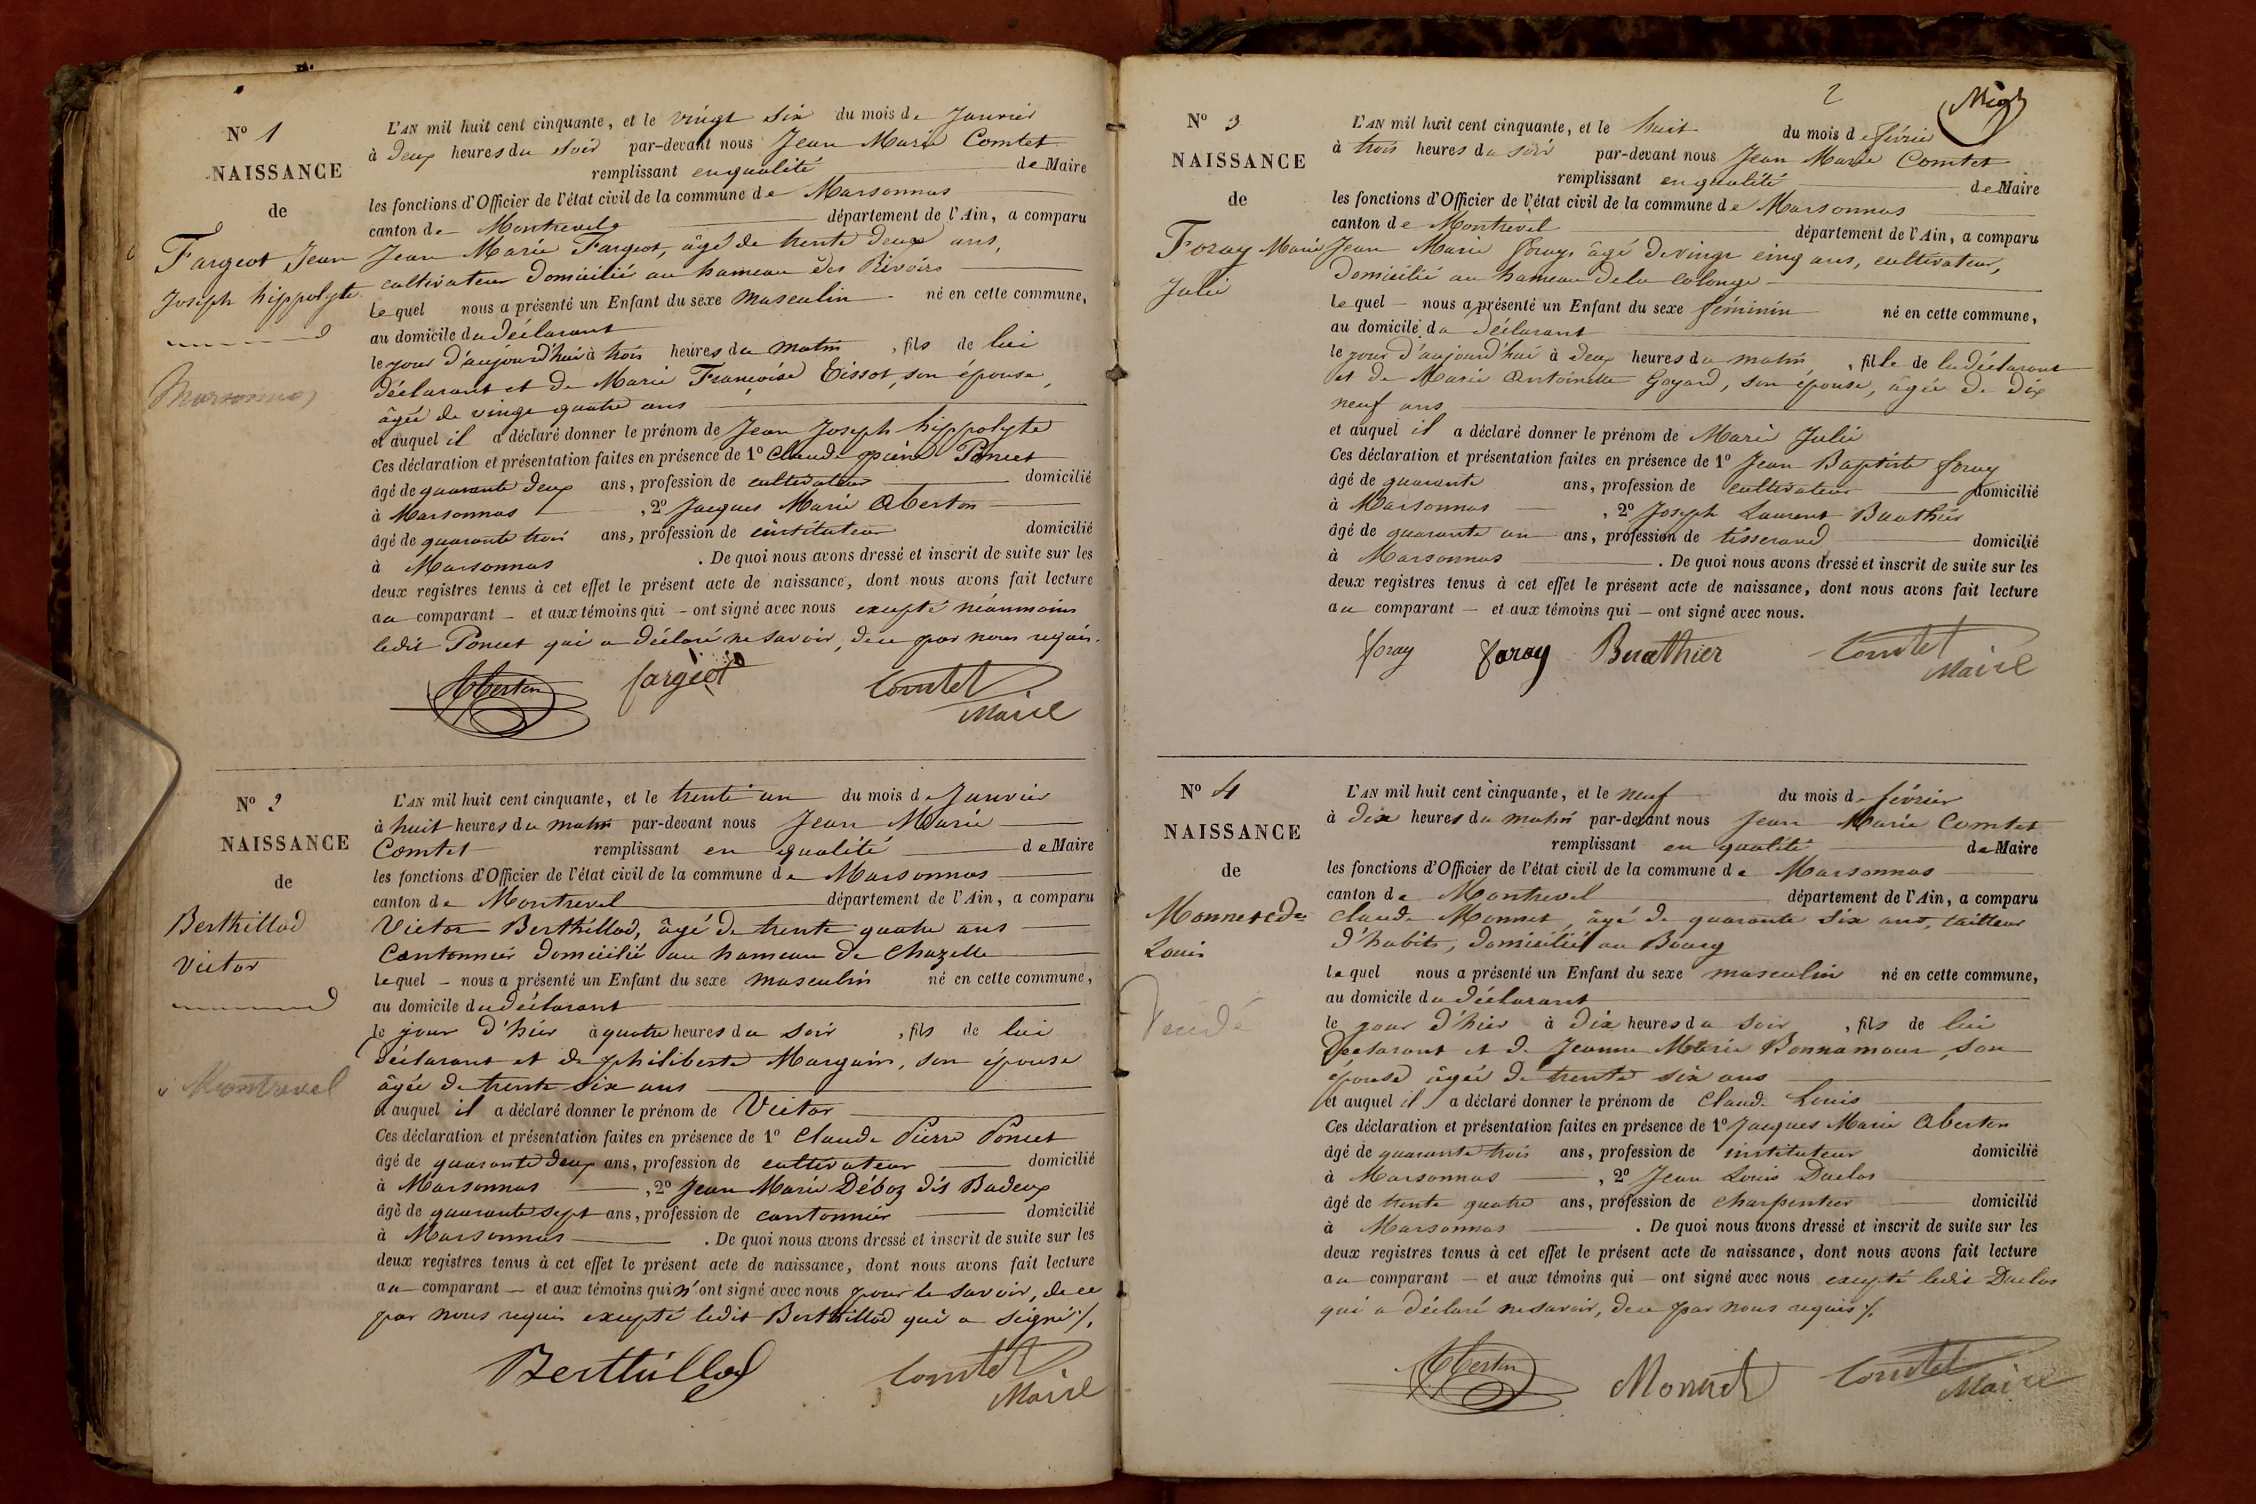 N° 1
NAISSANCE
de
Fargeot Jean
Joseph hippolyte
Marsonnas
L'AN mil huit cent cinquante, et le vingt six du mois de Janvier
à deux heures du soir par-devant nous Jean Marie Comtet
remplissant en qualité de Maire
les fonctions d'Officier de l'état civil de la commune de Marsonnas
canton de Montrevel département de l'Ain, a comparu
Jean Marie Fargeot, âgé de trente deux ans,
cultivateur domicilié au hameau des Rivoirs
Le quel nous a présenté un Enfant du sexe masculin né en cette commune,
au domicile du déclarant
le jour d'aujourd'hui à trois heures du matin, fils de lui
déclarant et de Marie Françoise Tissot, son épouse,
âgée de vingt quatre ans
et auquel il a déclaré donner le prénom de Jean Joseph hippolyte
Ces déclaration et présentation faites en présence de 1° Claude pierre Poncet
âgé de quarante deux ans, profession de cultivateur domicilié
à Marsonnas, 2° Jacques Marie Aberton
âgé de quarante trois ans, profession de instituteur domicilié
à Marsonnas. De quoi nous avons dressé et inscrit de suite sur les
deux registres tenus à cet effet le présent acte de naissance, dont nous avons fait lecture
au comparant et aux témoins qui ont signé avec nous excepté néanmoins
ledit Poncet qui a déclaré ne savoir, de ce par nous requis.
Aberton fargeot Comtet
Maire
N° 2
NAISSANCE
de
Berthillod
Victor
Montrevel
L'AN mil huit cent cinquante, et le trente un du mois de Janvier
à huit heures du matin par-devant nous Jean Marie
Comtet remplissant en qualité de Maire
les fonctions d'Officier de l'état civil de la commune de Marsonnas
canton de Montrevel département de l'Ain, a comparu
Victor Berthillod, âgé de trente quatre ans
Cantonnier domicilié au hameau de Chazelle
Le quel nous a présenté un Enfant du sexe masculin né en cette commune,
au domicile du déclarant
le jour d'hier à quatre heures du soir, fils de lui
déclarant et de philiberte Marguin, son épouse
âgée de trente six ans
et auquel il a déclaré donner le prénom de Victor
Ces déclaration et présentation faites en présence de 1° Claude Pierre Poncet
âgé de quarante deux ans, profession de cultivateur domicilié
à Marsonnas, 2° Jean Marie Déboz dit Badeux
âgé de quarante sept ans, profession de cantonnier domicilié
à Marsonnas. De quoi nous avons dressé et inscrit de suite sur les
deux registres tenus à cet effet le présent acte de naissance, dont nous avons fait lecture
au comparant et aux témoins qui n'ont signé avec nous pour le savoir, de ce
par nous requis excepté ledit Berthillod qui a signé /.
Berthillod Comtet
Maire
2
N° 3
NAISSANCE
de
Foray Marie
Julie
L'AN mil huit cent cinquante, et le huit du mois de février
à trois heures du soir par-devant nous Jean Marie Comtet
remplissant en qualité de Maire
les fonctions d'Officier de l'état civil de la commune de Marsonnas
canton de Montrevel département de l'Ain, a comparu
Jean Marie foray, âgé de vingt cinq ans, cultivateur,
domicilié au hameau de la colonge
Le quel nous a présenté un Enfant du sexe féminin né en cette commune,
au domicile du déclarant
le jour d'aujourd'hui à deux heures du matin, fille de lu déclarant
et de Marie Antoinette Goyard, son épouse, âgée de dix
neuf ans
et auquel il a déclaré donner le prénom de Marie Julie
Ces déclaration et présentation faites en présence de 1° Jean Baptiste foray
âgé de quarante ans, profession de cultivateur domicilié
à Marsonnas, 2° Joseph Laurent Buathier
âgé de quarante un ans, profession de tisserand domicilié
à Marsonnas. De quoi nous avons dressé et inscrit de suite sur les
deux registres tenus à cet effet le présent acte de naissance, dont nous avons fait lecture
au comparant et aux témoins qui ont signé avec nous.
foray foray Buathier Comtet
Maire
N° 4
NAISSANCE
de
Monnet Cde
Louis
L'AN mil huit cent cinquante, et le neuf du mois de février
à dix heures du matin par-devant nous Jean Marie Comtet
remplissant en qualité de Maire
les fonctions d'Officier de l'état civil de la commune de Marsonnas
canton de Montrevel département de l'Ain, a comparu
Claude Monnet, âgé de quarante six ans, tailleur
d'habits, domicilié au Bourg
Le quel nous a présenté un Enfant du sexe masculin né en cette commune,
au domicile du déclarant
le jour d'hier à dix heures du soir, fils de lui
Déclarant et de Jeanne Marie Bonnamour, son
épouse âgée de trente six ans
et auquel il a déclaré donner le prénom de Claude Louis
Ces déclaration et présentation faites en présence de 1° Jacques Marie Aberton
âgé de quarante trois ans, profession de instituteur domicilié
à Marsonnas, 2° Jean Louis Duclos
âgé de trente quatre ans, profession de charpentier domicilié
à Marsonnas. De quoi nous avons dressé et inscrit de suite sur les
deux registres tenus à cet effet le présent acte de naissance, dont nous avons fait lecture
au comparant et aux témoins qui ont signé avec nous excepté ledit Duclos
qui a déclaré ne savoir, de ce par nous requis /.
Aberton Monnet Comtet
Maire